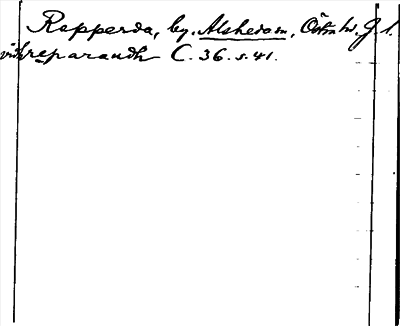 Rapperda, by. Alsheda sn, Östra hd. J. l.
vidhreparaudh C. 36. s. 41.